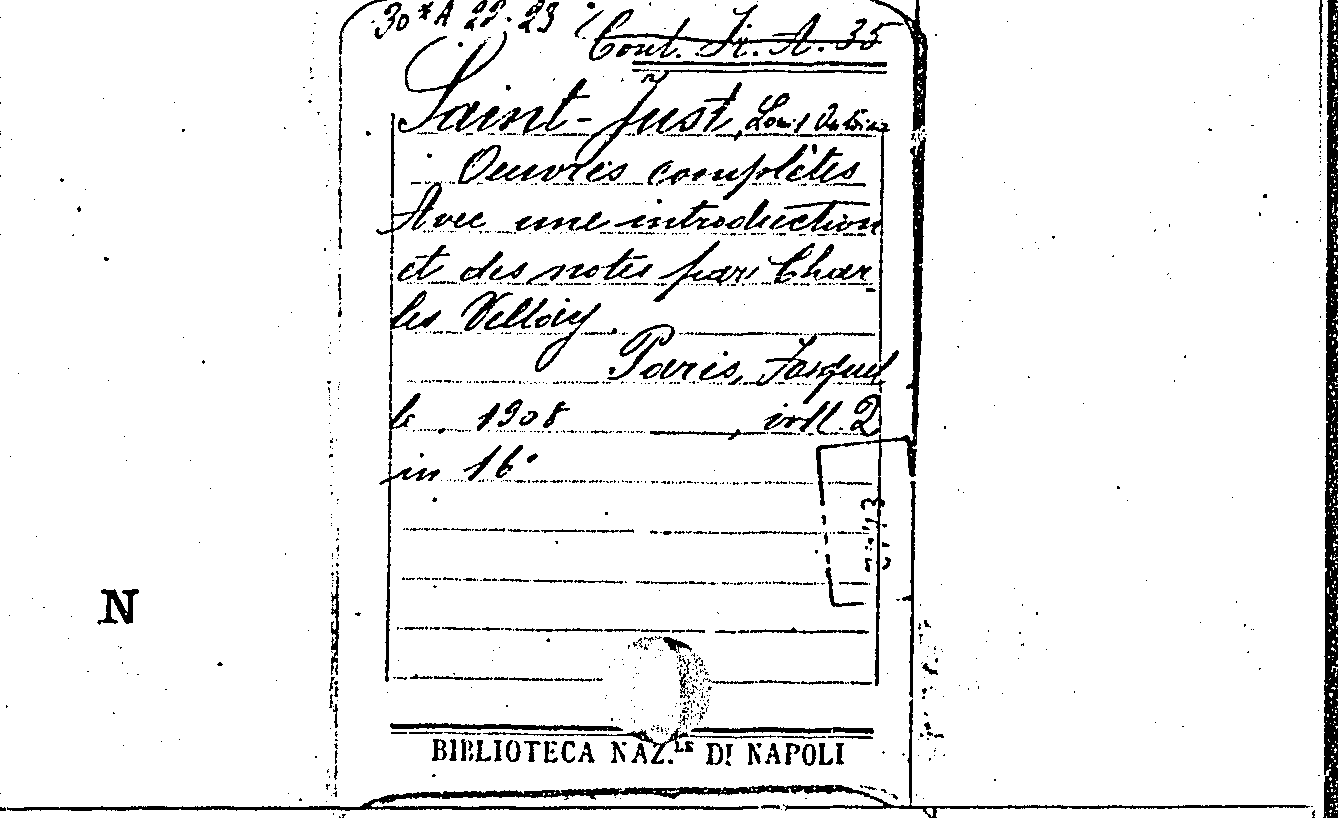 30*A 22-23
Cont. Fr. A. 35
Saint-Just, Louis Antoine
Oeuvres complètes
Avec une introduction
et des notes par Char
les Vellay.
Paris, Fasquel
le, 1908, voll. 2
in 16°
N
BIBLIOTECA NAZ.LE DI NAPOLI